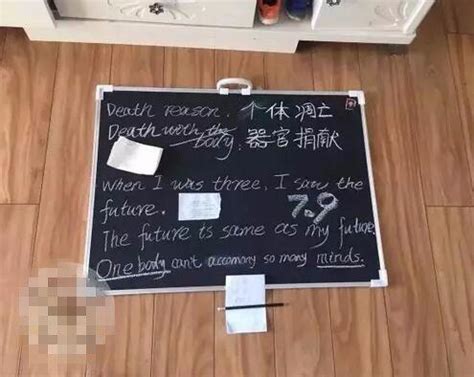 Death reason. 个体凋亡
Death with the body. 器官捐献
when I was three, I saw the
future. 7.9
The future is same as my future.
One body can't accomony so many minds.